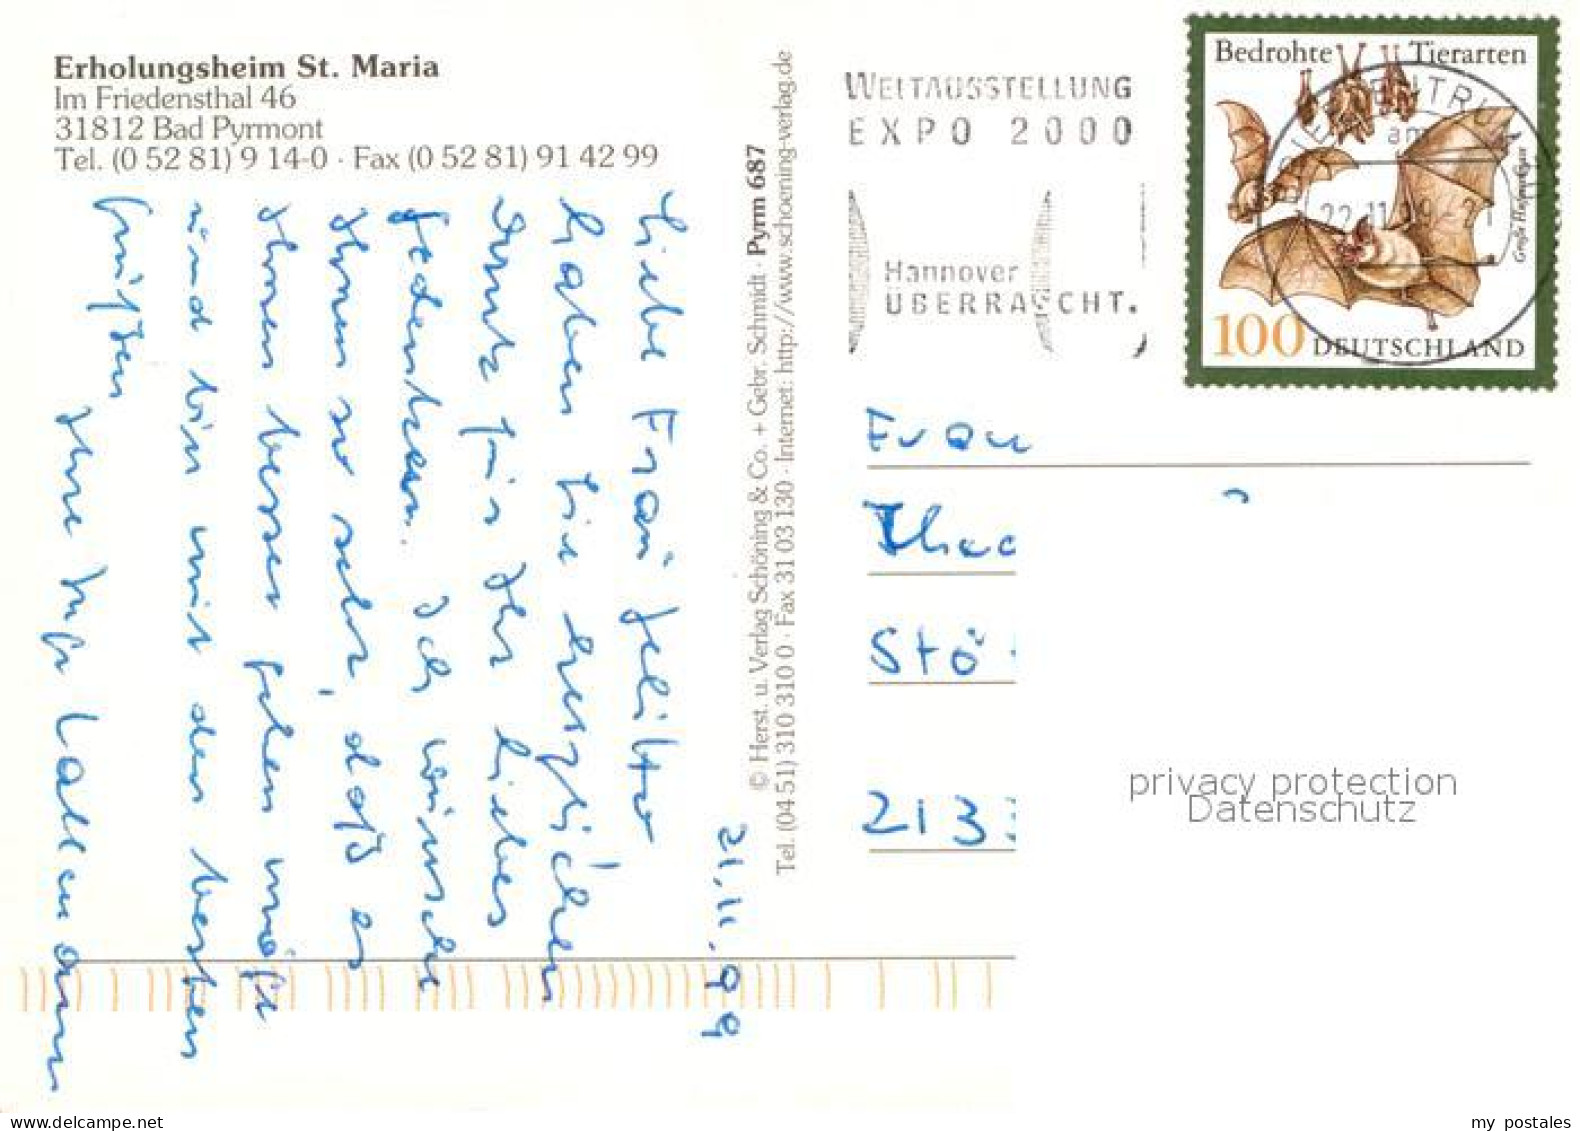 Erholungsheim St. Maria
Im Friedensthal 46
31812 Bad Pyrmont
Tel. (0 52 81) 9 14-0 · Fax (0 52 81) 91 42 99
21.11.99
Liebe Frau Jelitto
haben Sie herzlichen
Dank für Ihr liebes
Gedenken. Ich wünsche
Ihnen so sehr, daß es
Ihnen besser gehen möge
und bin mit den besten
Grüßen
Ihre
© Herst. u. Verlag Schöning & Co. + Gebr. Schmidt · Pyrm 687
Tel. (04 51) 310 310 0 · Fax 31 03 130 · Internet: http://www.schoening-verlag.de
WELTAUSSTELLUNG
EXPO 2000
Hannover
ÜBERRASCHT.
Bedrohte Tierarten
Große Hufeisennase
100 DEUTSCHLAND
22.11.99
Frau
Thea
Stö
213
privacy protection
Datenschutz
www.delcampe.net
my postales